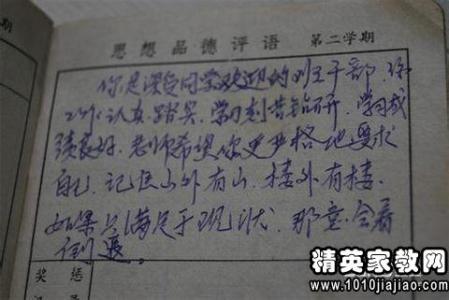 思想品德评语 第二学期
你是深受同学欢迎的班干部 你
工作认真踏实，学习刻苦钻研，学习成
绩良好。老师希望你更严格地要求
自己，记住山外有山，楼外有楼，
如果只满足于现状，那意会着
倒退。
奖惩
精英家教网
www.1010jiajiao.com